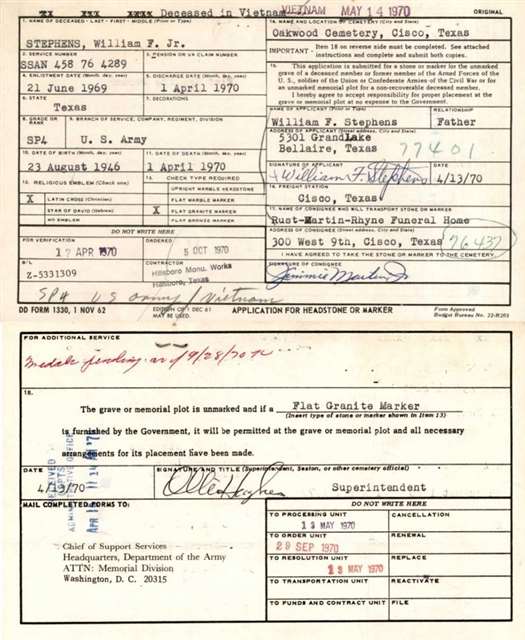 Deceased in Vietnam
VIETNAM MAY 14 1970
ORIGINAL
1. NAME OF DECEASED - LAST - FIRST - MIDDLE (Print or Type)
STEPHENS, William F. Jr.
14. NAME AND LOCATION OF CEMETERY (City and State)
Oakwood Cemetery, Cisco, Texas
2. SERVICE NUMBER
SSAN 458 76 4289
3. PENSION OR VA CLAIM NUMBER
IMPORTANT - Item 18 on reverse side must be completed. See attached instructions and complete and submit both copies.
4. ENLISTMENT DATE (Month, day, year)
21 June 1969
5. DISCHARGE DATE (Month, day, year)
1 April 1970
15. This application is submitted for a stone or marker for the unmarked
grave of a deceased member or former member of the Armed Forces of the
U.S., soldier of the Union or Confederate Armies of the Civil War or for
an unmarked memorial plot for a non-recoverable deceased member.
I hereby agree to accept responsibility for proper placement at the
grave or memorial plot at no expense to the Government.
6. STATE
Texas
7. DECORATIONS
NAME OF APPLICANT (Print or Type)
William F. Stephens
RELATIONSHIP
Father
8. GRADE OR RANK
SP4
9. BRANCH OF SERVICE, COMPANY, REGIMENT, DIVISION
U. S. Army
ADDRESS OF APPLICANT (Street address, City and State)
5301 GrandLake
Bellaire, Texas
77401
10. DATE OF BIRTH (Month, day, year)
23 August 1946
11. DATE OF DEATH (Month, day, year)
1 April 1970
SIGNATURE OF APPLICANT
William F. Stephens
DATE
4/13/70
12. RELIGIOUS EMBLEM (Check one)
X LATIN CROSS (Christian)
STAR OF DAVID (Hebrew)
NO EMBLEM
13. CHECK TYPE REQUIRED
UPRIGHT MARBLE HEADSTONE
FLAT MARBLE MARKER
X FLAT GRANITE MARKER
FLAT BRONZE MARKER
16. FREIGHT STATION
Cisco, Texas
17. NAME OF CONSIGNEE WHO WILL TRANSPORT STONE OR MARKER
Rust-Martin-Rhyne Funeral Home
DO NOT WRITE HERE
ADDRESS OF CONSIGNEE (Street address, City and State)
300 West 9th, Cisco, Texas
76437
FOR VERIFICATION
17 APR 1970
ORDERED
5 OCT 1970
I HAVE AGREED TO TAKE THE STONE OR MARKER TO THE CEMETERY.
B/L
Z-5331309
CONTRACTOR
Hillsboro Monu. Works
Hillsboro, Texas
SIGNATURE OF CONSIGNEE
Jimmie Martin Jr
SP4 US Army / Vietnam
DD FORM 1330, 1 NOV 62
EDITION OF 1 DEC 61 MAY BE USED.
APPLICATION FOR HEADSTONE OR MARKER
Form Approved
Budget Bureau No. 22-R201
FOR ADDITIONAL SERVICE
Medals pending as of 9/28/70
18.
The grave or memorial plot is unmarked and if a Flat Granite Marker
(Insert type of stone or marker shown in Item 13)
is furnished by the Government, it will be permitted at the grave or memorial plot and all necessary
arrangements for its placement have been made.
DATE
4/13/70
SIGNATURE AND TITLE (Superintendent, Sexton, or other cemetery official)
Superintendent
MAIL COMPLETED FORMS TO:
DO NOT WRITE HERE
Chief of Support Services
Headquarters, Department of the Army
ATTN: Memorial Division
Washington, D. C. 20315
TO PROCESSING UNIT
13 MAY 1970
CANCELLATION
TO ORDER UNIT
29 SEP 1970
RENEWAL
TO RESOLUTION UNIT
13 MAY 1970
REPLACE
TO TRANSPORTATION UNIT
REACTIVATE
TO FUNDS AND CONTRACT UNIT
FILE